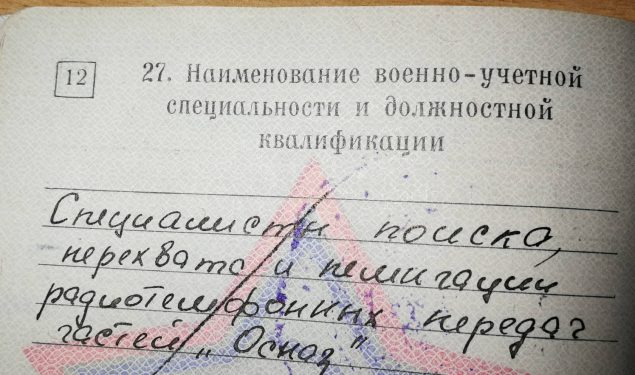 12
27. Наименование военно-учетной
специальности и должностной
квалификации
Специалисты поиска,
перехвата и пелигации
радиотелефонных передач
частей "Осназ"